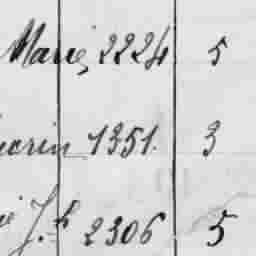 Marie, 2224 5
uerin 1351. 3
J.h 2306 5